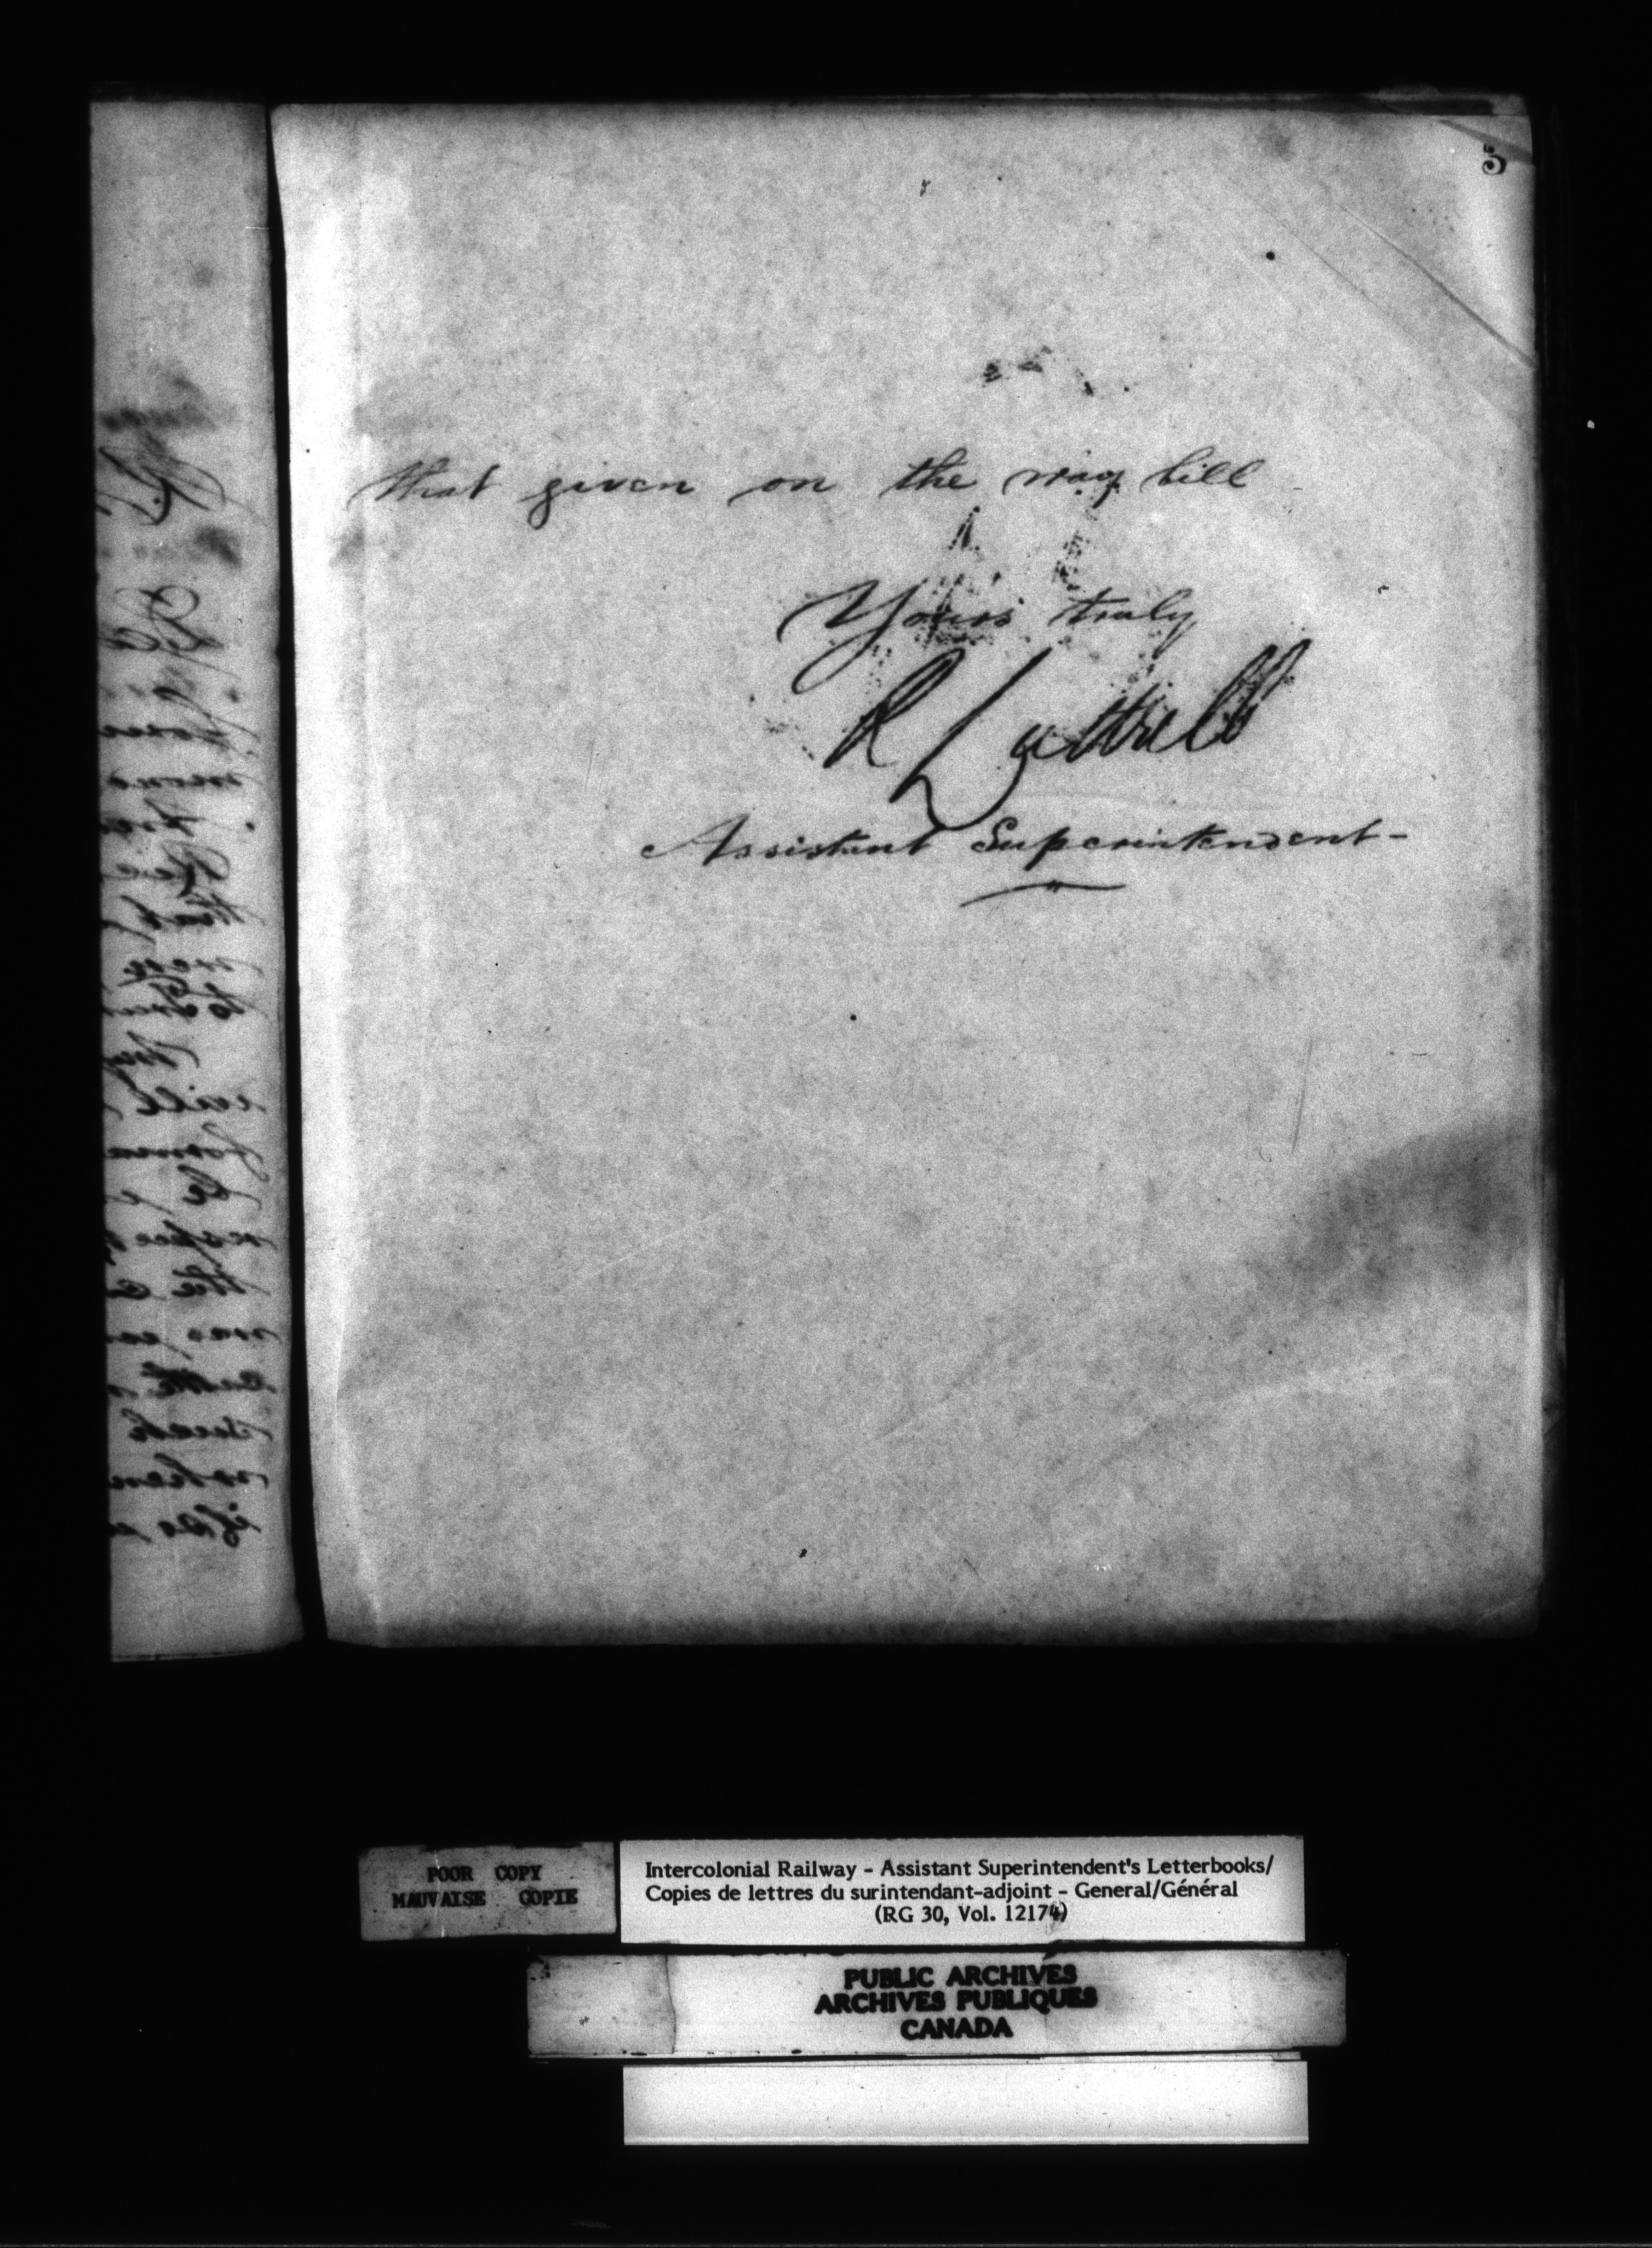 5
that given on the way bill
Yours truly
R Luttrell
Assistant Superintendent-
will
be
the
was
such
when
if so
POOR COPY
MAUVAISE COPIE
Intercolonial Railway - Assistant Superintendent's Letterbooks/
Copies de lettres du surintendant-adjoint - General/Général
(RG 30, Vol. 12174)
PUBLIC ARCHIVES
ARCHIVES PUBLIQUES
CANADA